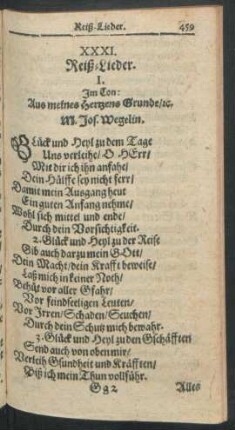 Reiß-Lieder. 459
XXXI.
Reiß-Lieder.
I.
Im Ton:
Aus meines Hertzens Grunde/ꝛc.
M. Jos. Wegelin.
Glück und Heyl zu dem Tage
Uns verleihe/ O HErr/
Mit dir ich ihn anfahe/
Dein Hülffe sey nicht ferr/
Damit mein Ausgang heut
Ein guten Anfang nehme/
Wohl sich mittel und ende/
Durch dein Vorsichtigkeit.
2. Glück und Heyl zu der Reise
Gib auch darzu mein GOtt/
Dein Macht/ dein Krafft beweise/
Laß mich in keiner Noth/
Behüt vor aller Gfahr/
Vor feindseeligen Leuten/
Vor Irren/ Schaden/ Seuchen/
Durch dein Schutz mich bewahr.
3. Glück und Heyl zu den Gschäfften
Send auch von oben mir/
Verleih Gsundheit und Kräfften/
Biß ich mein Thun vollführ.
Gg 2 Alles